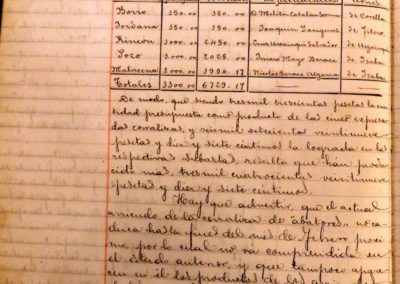 Borro 150.00 150.00 D. Melitón Catalán de Corella
Jordana 150.00 Joaquín Sanguas de Fitero
Rincón 1000.00 2450.00 Salvador
Sozo 1000.00 2025.00
Matacena 1000.00 1954.17
Totales 3300.00 6729.17
De modo, que siendo tres mil trescientas pesetas la can
tidad presupuesta como producto de las cinco expresa
das corralizas, y seis mil setecientas veintinueve
pesetas y diez y siete céntimos la lograda en las
respectivas subastas, resulta que han produ
cido más, tres mil cuatrocientas veintinueve
pesetas y diez y siete céntimos.
Hay que advertir, que el actual
arriendo de la corraliza de "Abatores" no ca
duca hasta fines del mes de Febrero próxi
mo, por lo cual no va comprendida en
el estado anterior, y que tampoco apare
cen en él los productos de los